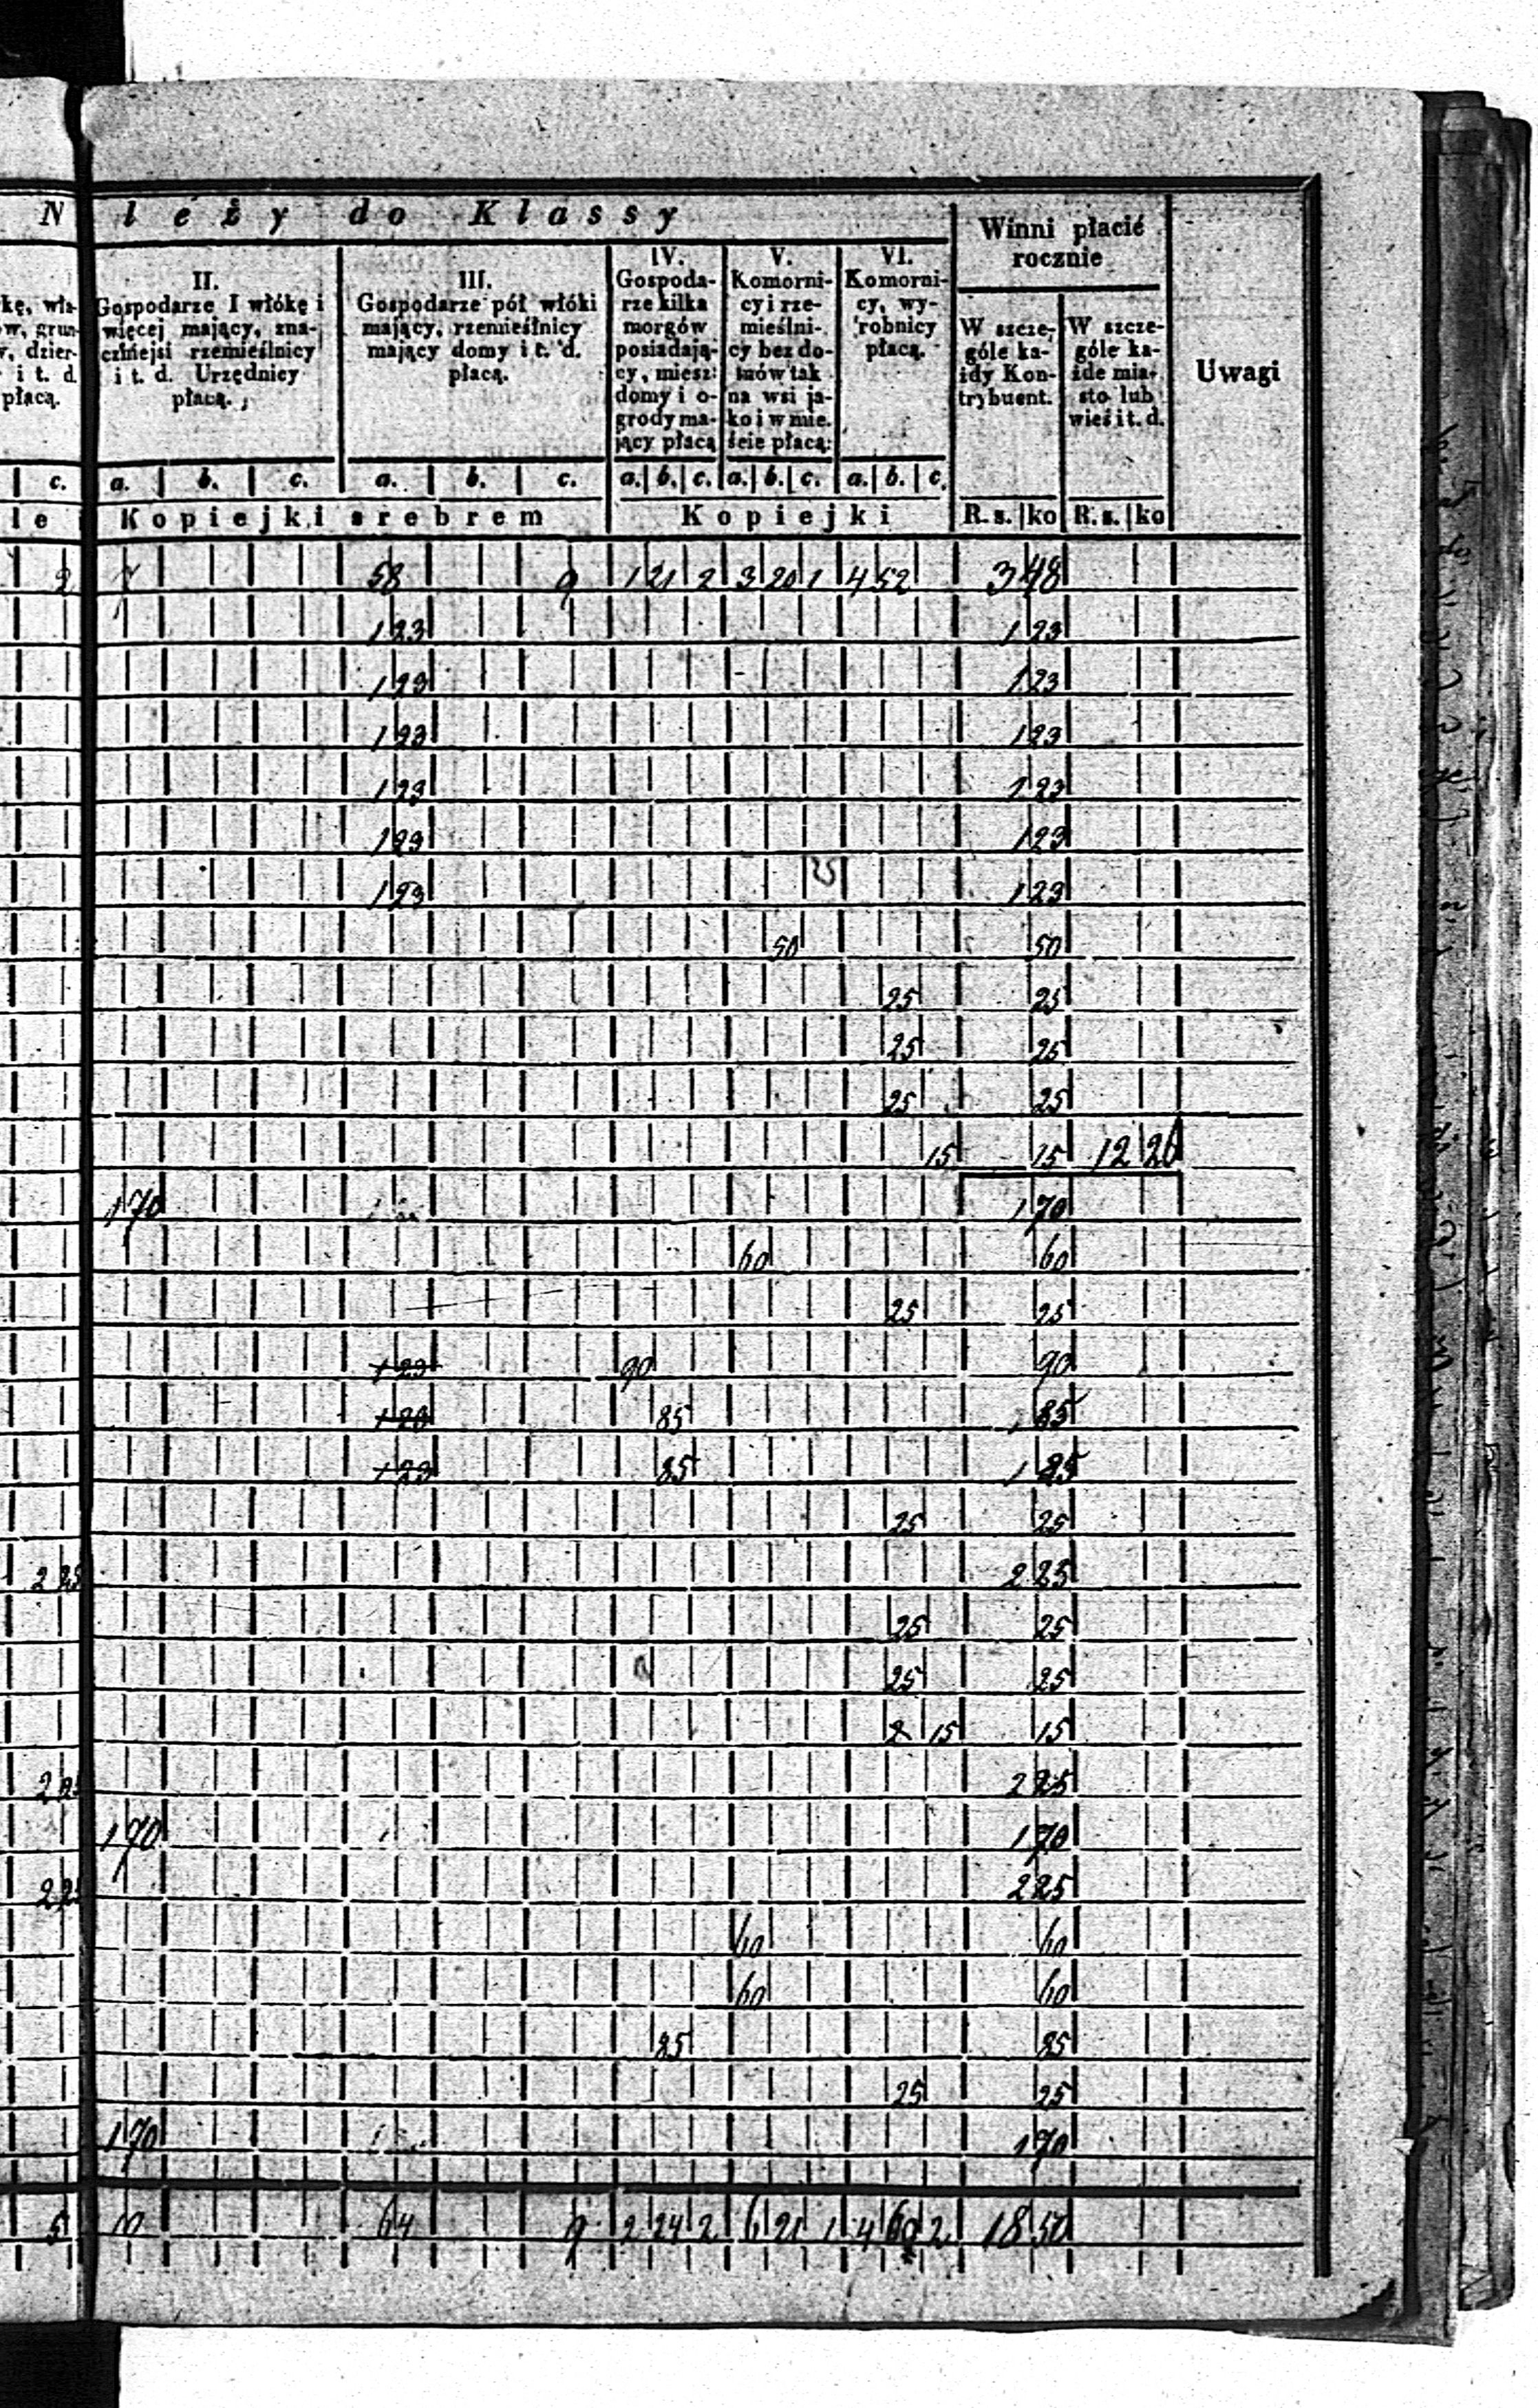 N leży do Klassy
Winni płacić rocznie
Uwagi
kę, wła-
w, grun-
, dzier-
i t. d
płacą.
II.
Gospodarze I włókę i
więcej mający, zna-
czniejsi rzemieślnicy
i t. d. Urzędnicy
płacą.
III.
Gospodarze pół włóki
mający, rzemieślnicy
mający domy i t. d.
płacą.
IV.
Gospoda-
rze kilka
morgów
posiadają-
cy, miesz:
domy i o-
grody ma-
jący płacą
V.
Komorni-
cy i rze-
mieślni-
cy bez do-
mów tak
na wsi ja-
ko i w mie.
ście płacą:
VI.
Komorni-
cy, wy-
robnicy
płacą.
W szcze-
góle ka-
żdy Kon-
trybuent.
W szcze-
góle ka-
żde mia-
sto lub
wieś i t. d.
c. a. b. c. a. b. c. a. b. c. a. b. c. a. b. c.
le Kopiejki srebrem Kopiejki R. s. ko R. s. ko
2 7 58 9 1 21 2 3 20 1 4 52 3 48
1 23 1 23
1 23 1 23
1 23 1 23
1 23 1 23
1 23 1 23
1 23 1 23
50 50
25 25
25 25
25 25
15 15 12 26
1 70 1 70
60 60
25 25
1 23 90 90
1 23 85 85
1 23 85 1 85
25 25
2 25 2 25
25 25
25 25
15 15
2 25 2 25
1 70 1 70
2 25 2 25
60 60
60 60
85 85
25 25
1 70 1 70
5 64 9 2 24 2 6 21 1 4 60 2 18 50